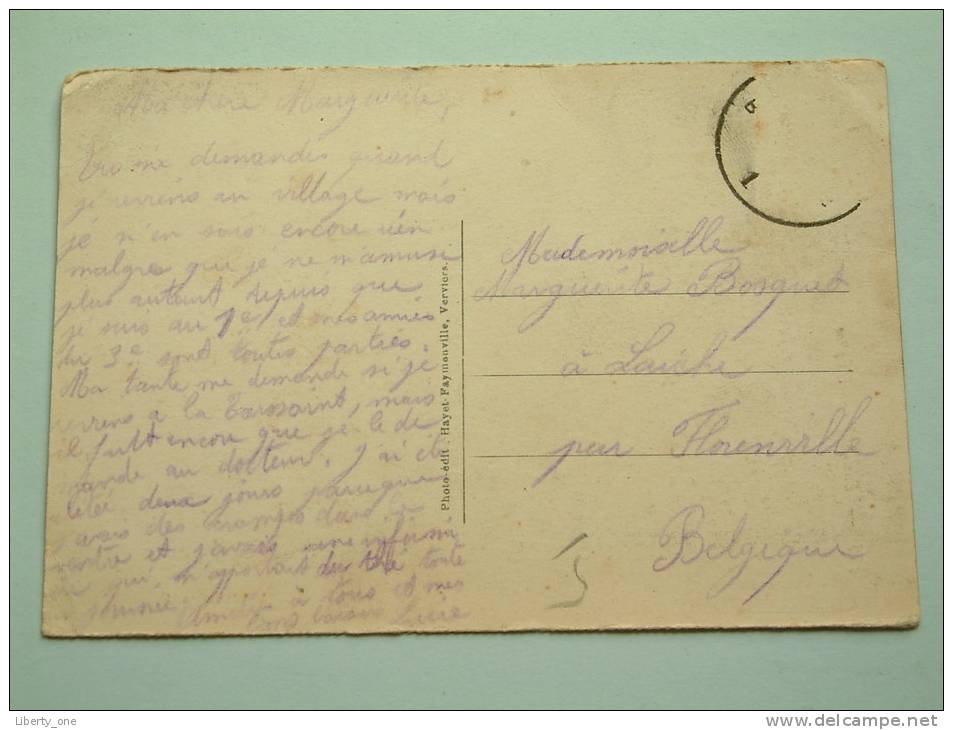 Ma chère Marguerite,
Tu me demandes quand
je reviens au village mais
je n'en sais encore rien
malgré que je ne m'amuse
plus autant depuis que
je suis au 1e et mes amies
du 3e sont toutes parties.
Ma tante me demande si je
reviens a la Toussaint, mais
il faut encore que je le de
mande au docteur. J'ai été
deux jours parceque
j'avais des crampes dans le
ventre et j'avais une infirmi
qui m'apportait du thé toute
à tous et mes
bons baisers Lucie
Photo-édit : Hayet-Faymonville, Verviers.
Mademoiselle
Marguerite Bosquet
à Laiche
par Florenville
Belgique
Liberty_one
www.delcampe.net